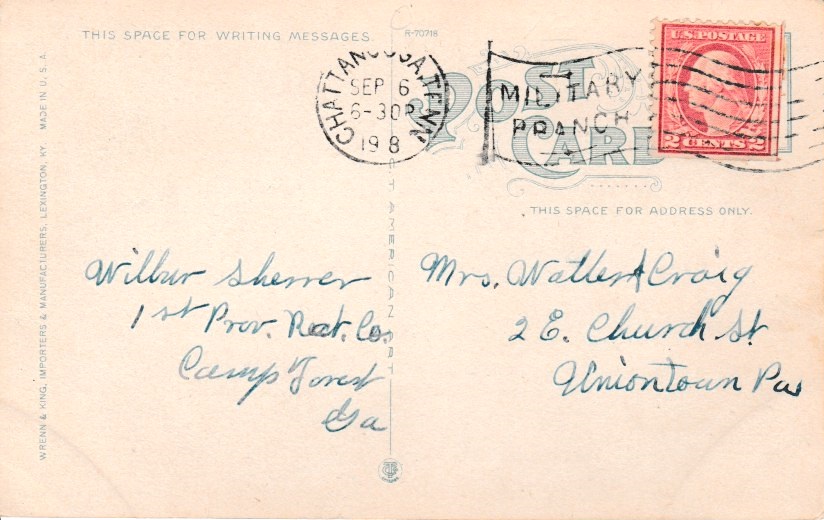 THIS SPACE FOR WRITING MESSAGES.
R-70718
POST
CARD
THIS SPACE FOR ADDRESS ONLY.
CHATTANOOGA, TENN
SEP 6
6-30P
19 8
MILITARY
BRANCH
U.S. POSTAGE
2 CENTS 2
WRENN & KING, IMPORTERS & MANUFACTURERS, LEXINGTON, KY. MADE IN U. S. A.
AMERICAN ART
Wilbur Sherrer
1st Prov. Rect. Co.
Camp Forest
Ga
Mrs. Walter Craig
2 E. Church St
Uniontown Pa